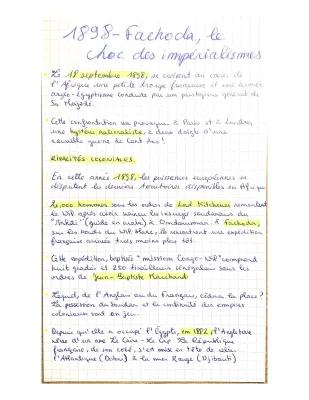 1898 - Fachoda, le
choc des impérialismes
Le 18 septembre 1898, se croisent au cœur de
l'Afrique une petite troupe française et une armée
anglo-égyptienne conduite par un prestigieux général de
Sa Majesté.
Cette confrontation va provoquer à Paris et à Londres
une hystérie nationaliste, à deux doigts d'une
nouvelle guerre de Cent Ans !
RIVALITÉS COLONIALES
En cette année 1898, les puissances européennes se
disputent les derniers territoires disponibles en Afrique
20,000 hommes sous les ordres de Lord Kitchener remontent
le Nil après avoir vaincu les insurgés soudanais du
"Mahdi" (guide en arabe) à Omdourman. À Fachoda,
sur les bords du Nil Blanc, ils rencontrent une expédition
française arrivée trois mois plus tôt.
Cette expédition, baptisée "missions Congo-Nil" comprend
huit gradés et 250 tirailleurs sénégalais sous les
ordres de Jean-Baptiste Marchand
Lequel, de l'Anglais ou du Français, cédera la place ?
La possession du Soudan et la continuité des empires
coloniaux sont en jeu.
Depuis qu'elle a occupé l'Égypte, en 1882, l'Angleterre
rêve d'un axe Le Caire - Le Cap. La République
française, de son côté, s'est mise en tête de relier
l'Atlantique (Dakar) à la mer Rouge (Djibouti)